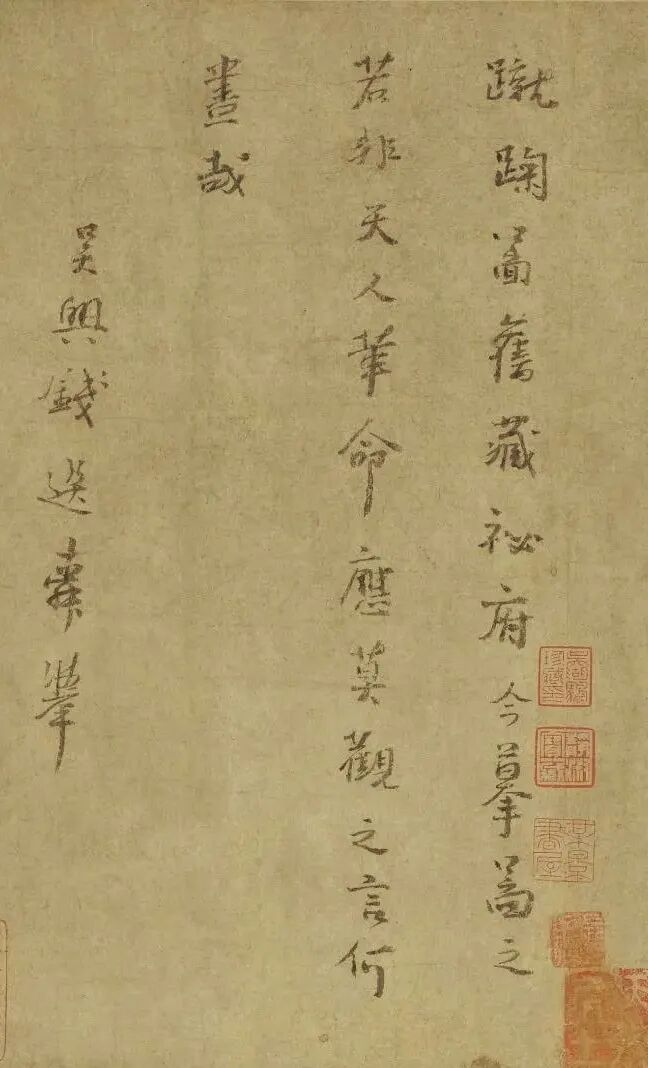 蹴踘啚舊藏祕府今摹啚之
若非天人革命應莫觀之言何
畫哉
吳興錢選舜舉